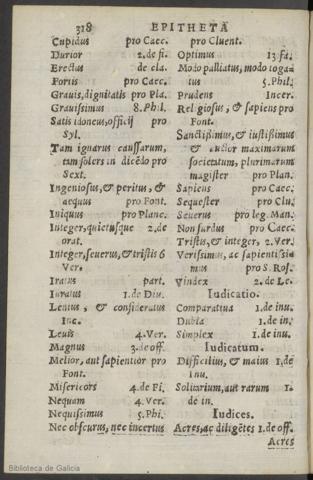 318 EPITHETA
Cupidus pro Caec.
Durior 2.de fi.
Erectus de cla.
Fortis pro Caec.
Grauis, dignitatis pro Pla.
Grauissimus 8.Phil.
Satis idoneus, offi.ij pro
Syl.
Tam ignarus caussarum,
tam solers in dicẽdo pro
Sext.
Ingeniosus, & peritus, &
aequus pro Font.
Iniquus pro Planc.
Integer, quietusque 2.de
orat.
Integer, seuerus, & tristis 6
Ver.
Iratus part.
Iuratus 1.de Diu.
Lentus, & consideratus
Inc.
Leuis 4.Ver.
Magnus 3.de off.
Melior, aut sapientior pro
Font.
Misericors 4.de Fi.
Nequam 4.Ver.
Nequissimus 5.Phi.
Nec obscurus, nec incertus
pro Cluent.
Optimus 13.fa.
Modo palliatus, modo toga-
tus 5.Phil.
Prudens Incer.
Religiosus, & sapiens pro
Font.
Sanctissimus, & iustissimus
& auctor maximarum
societatum, plurimarum
magister pro Plan.
Sapiens pro Caec.
Sequester pro Clu.
Seuerus pro leg. Man.
Non surdus pro Caec.
Tristis, & integer, 2.Ver.
Verissimus, ac sapientissi-
mus pro S. Ros.
Vindex 2.de Le.
Iudicatio.
Comparatiua 1.de inu.
Dubia 1.de in.
Simplex 1.de inu.
Iudicatum.
Difficilius, & maius 1.de
Inu.
Solitarium, aut rarum 1.
de in.
Iudices.
Acres, ac diligẽtes 1.de off.
Acres
Biblioteca de Galicia